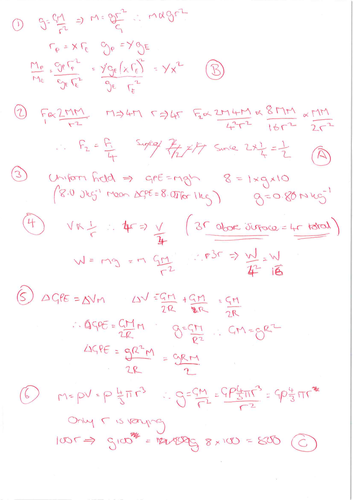 ① g = GM/r² ⇒ M = gr²/G ∴ M ∝ gr²
r_P = x r_E g_P = Y g_E
M_P/M_E = g_P r_P²/g_E r_E² = Y g_E (x r_E)²/g_E r_E² = Yx² Ⓑ
② F₁ ∝ 2MM/r² M⇒4M r⇒4r F₂ ∝ 2M4M/4²r² ∝ 8MM/16r² ∝ MM/2r²
∴ F₂ = F₁/4 since 2×1/4 = 1/2 Ⓐ
③ Uniform field ⇒ GPE = mgh 8 = 1×g×10
(8.0 Jkg⁻¹ mean ΔGPE = 8.0J for 1kg) g = 0.80 Nkg⁻¹
④ V ∝ 1/r ∴ 4r ⇒ V/4 (3r above surface = 4r total)
W = mg = m GM/r² ⇒ W/4² = W/16
⑤ ΔGPE = ΔVm ΔV = GM/2R = GM/2R
∴ ΔGPE = GMm/2R g = GM/R² ∴ GM = gR²
ΔGPE = gR²M/2R = gRM/2
⑥ M = ρV = ρ 4/3 πr³ ∴ g = GM/r² = Gρ 4/3 πr³/r² = Gρ 4/3 πr
Only r is varying
100r ⇒ g100 = 8 × 100 = 800 Ⓒ